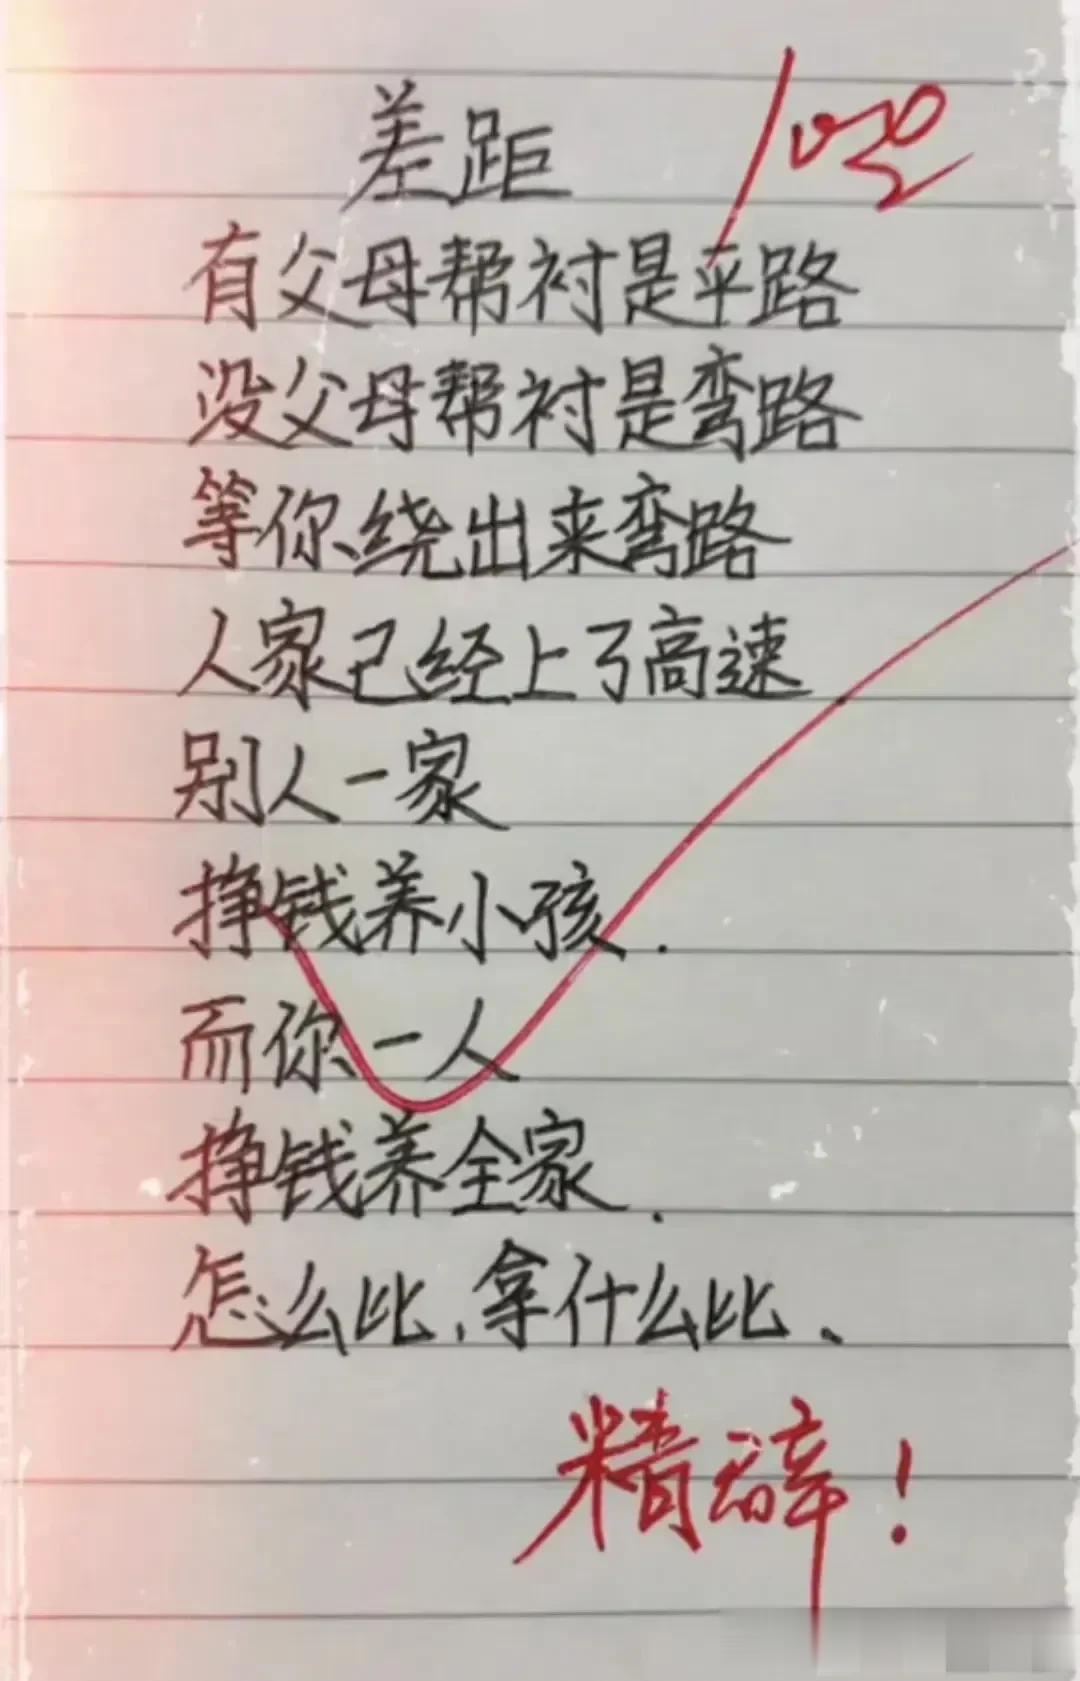 差距
100
有父母帮衬是平路
没父母帮衬是弯路
等你绕出来弯路
人家已经上了高速
别人一家
挣钱养小孩.
而你一人
挣钱养全家.
怎么比,拿什么比、
精辟!